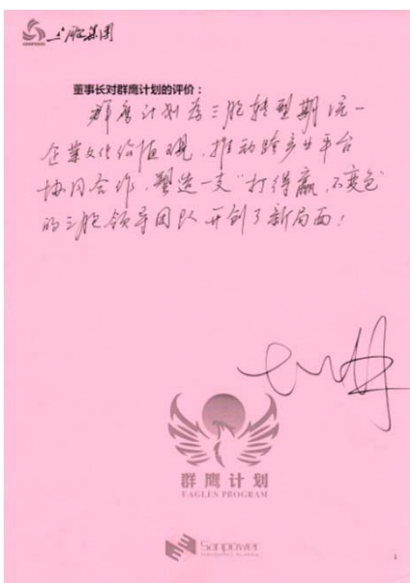 三胞集团
董事长对群鹰计划的评价：
群鹰计划为三胞转型期统一
企业文化价值观，推动跨产业平台
协同合作，塑造一支“打得赢，不变色
的三胞领导团队开创了新局面！
群鹰计划
EAGLES PROGRAM
Sanpower